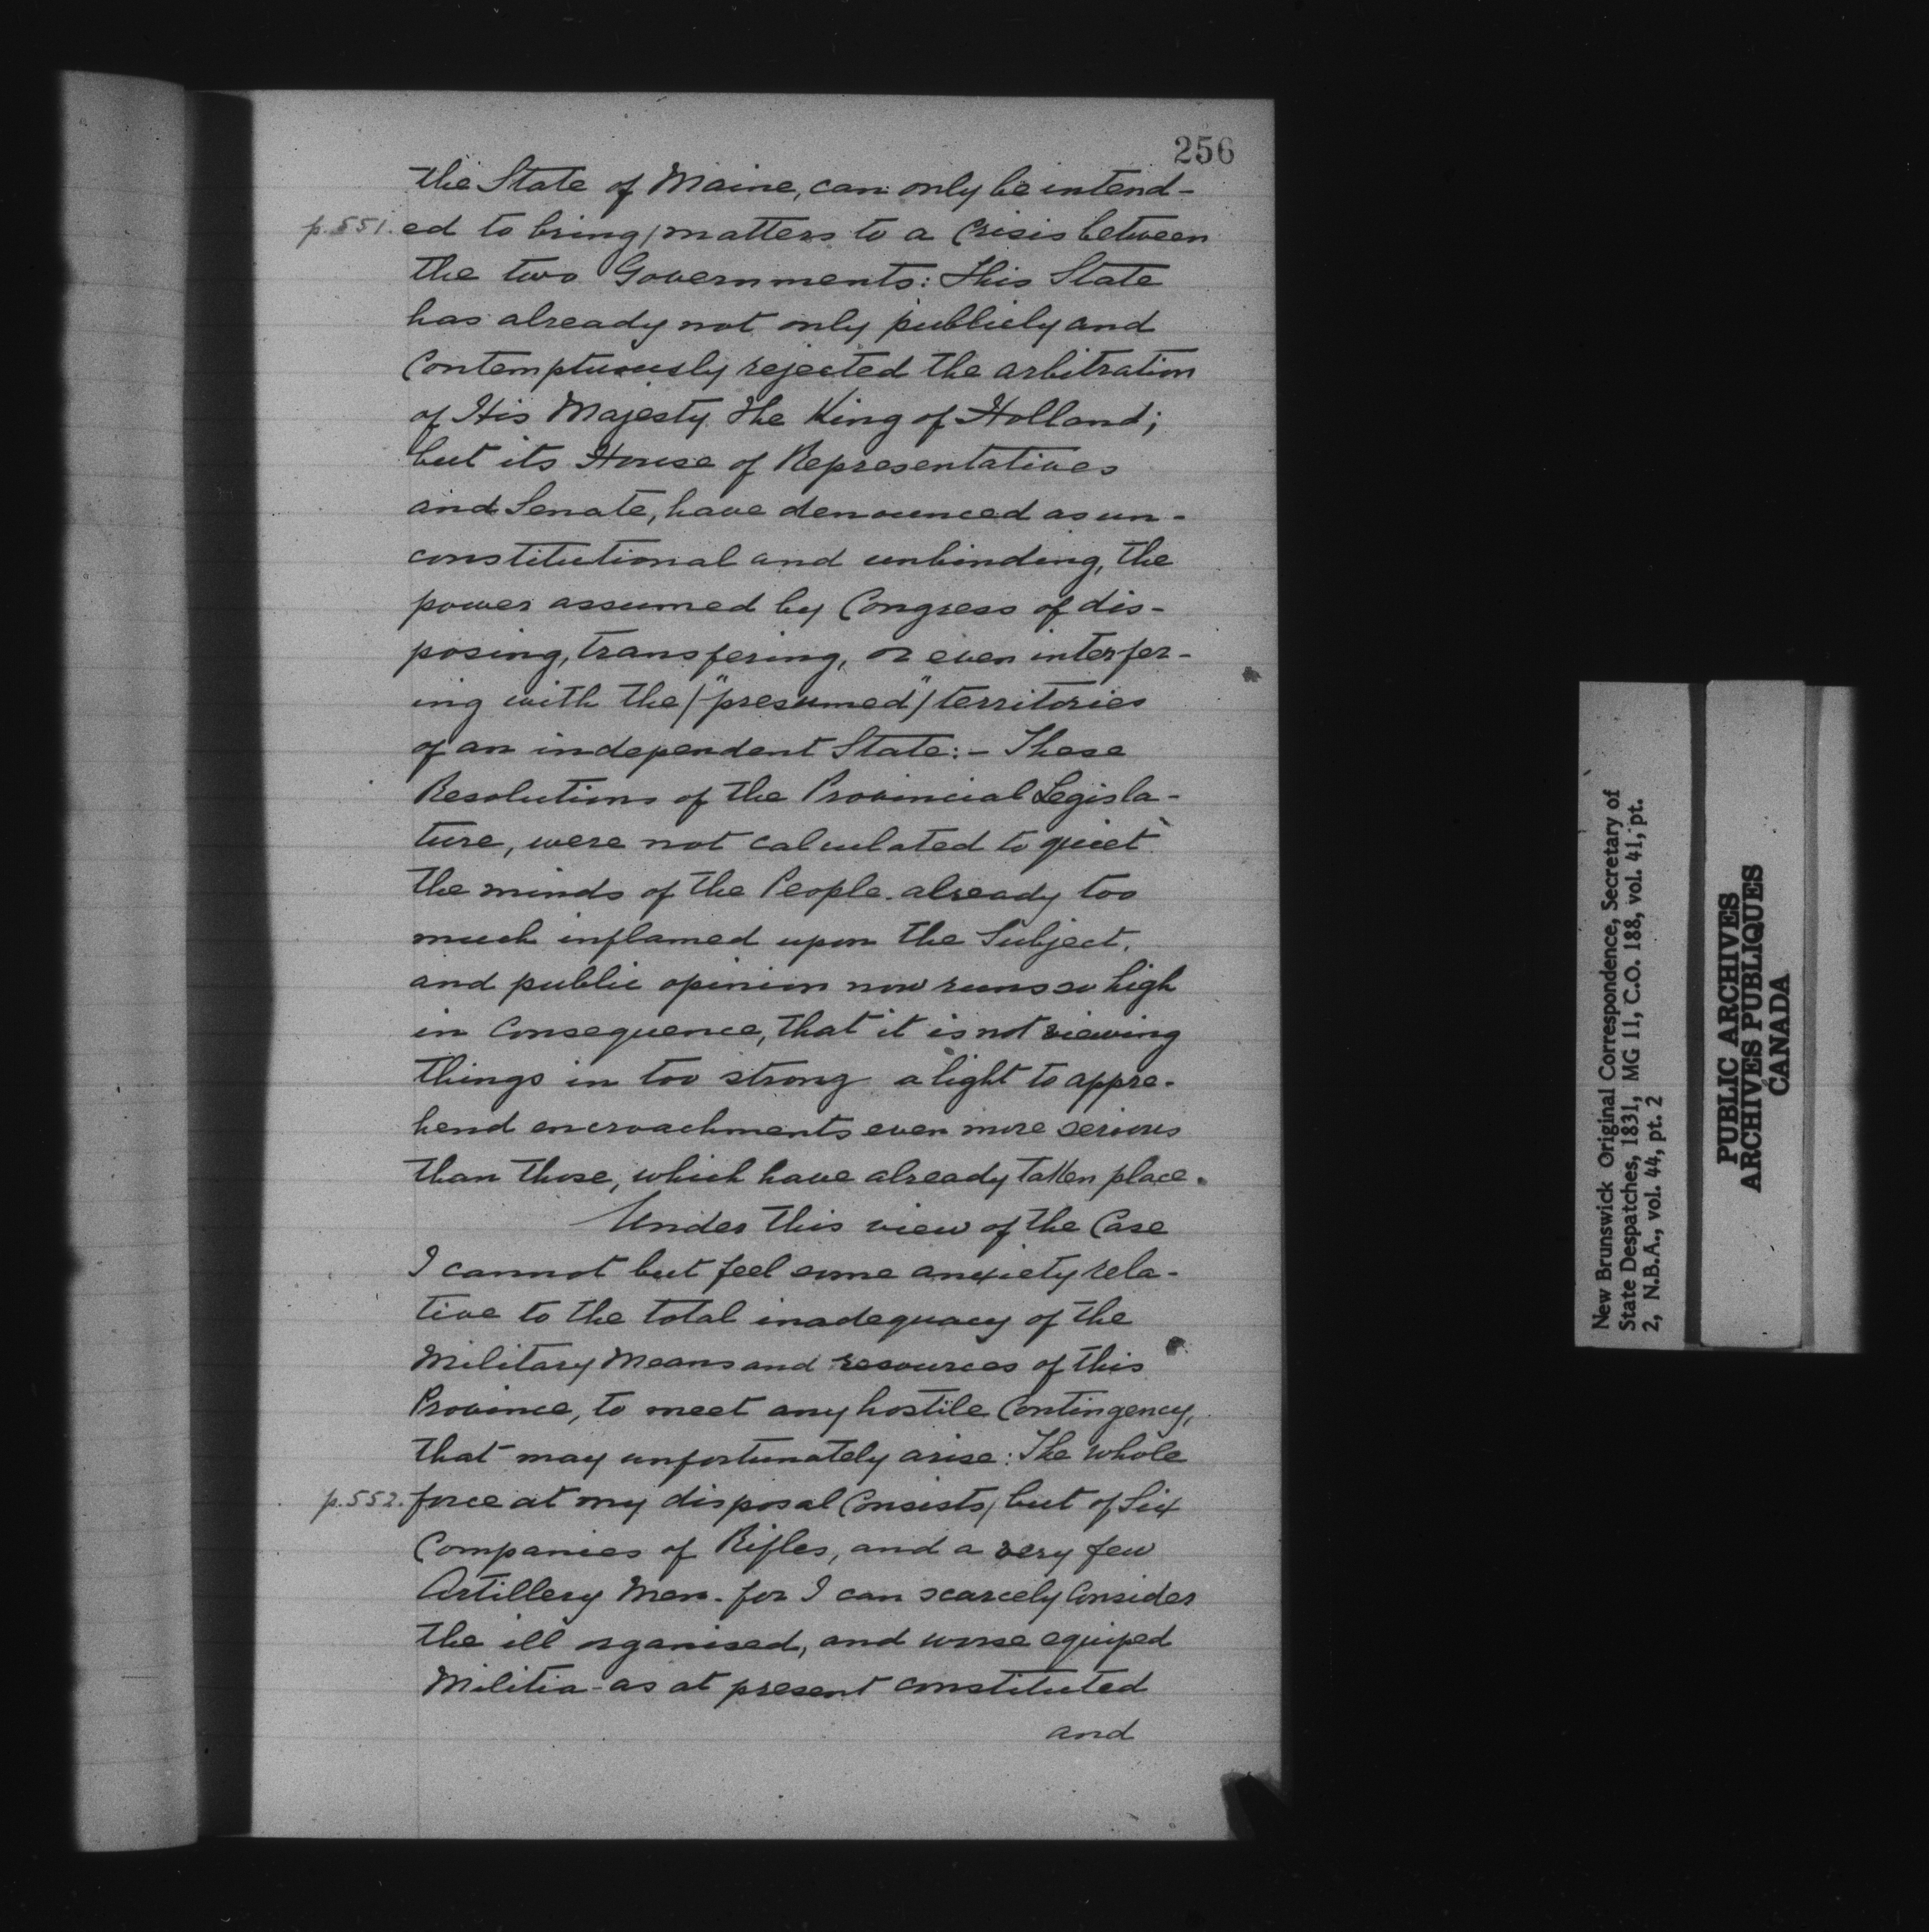 256
the State of Maine, can only be intend-
p.551. ed to bring/matters to a Crisis between
the two Governments: This State
has already not only publicly and
Contemptuously rejected the arbitration
of His Majesty the King of Holland;
but its House of Representatives
and Senate, have denounced as un-
constitutional and unbinding, the
power assumed by Congress of dis-
posing, transfering, or even interfer-
ing with the /"presumed"/ territories
of an independent State:- These
Resolutions of the Provincial Legisla-
ture, were not calculated to quiet
the minds of the People already too
much inflamed upon the Subject,
and public opinion now runs so high
in Consequence, that it is not viewing
things in too strong a light to appre-
hend encroachments even more serious
than those, which have already taken place.
Under this view of the Case
I cannot but feel some anxiety rela-
tive to the total inadequacy of the
Military Means and resources of this
Province, to meet any hostile Contingency,
that may unfortunately arise: The whole
p.552. force at my disposal Consists/but of Six
Companies of Rifles, and a very few
Artillery Men - for I can scarcely Consider
the ill organised, and worse equiped
Militia - as at present constituted
and
New Brunswick Original Correspondence, Secretary of
State Despatches, 1831, MG 11, C.O. 188, vol. 41, pt.
2, N.B.A., vol. 44, pt. 2
PUBLIC ARCHIVES
ARCHIVES PUBLIQUES
CANADA